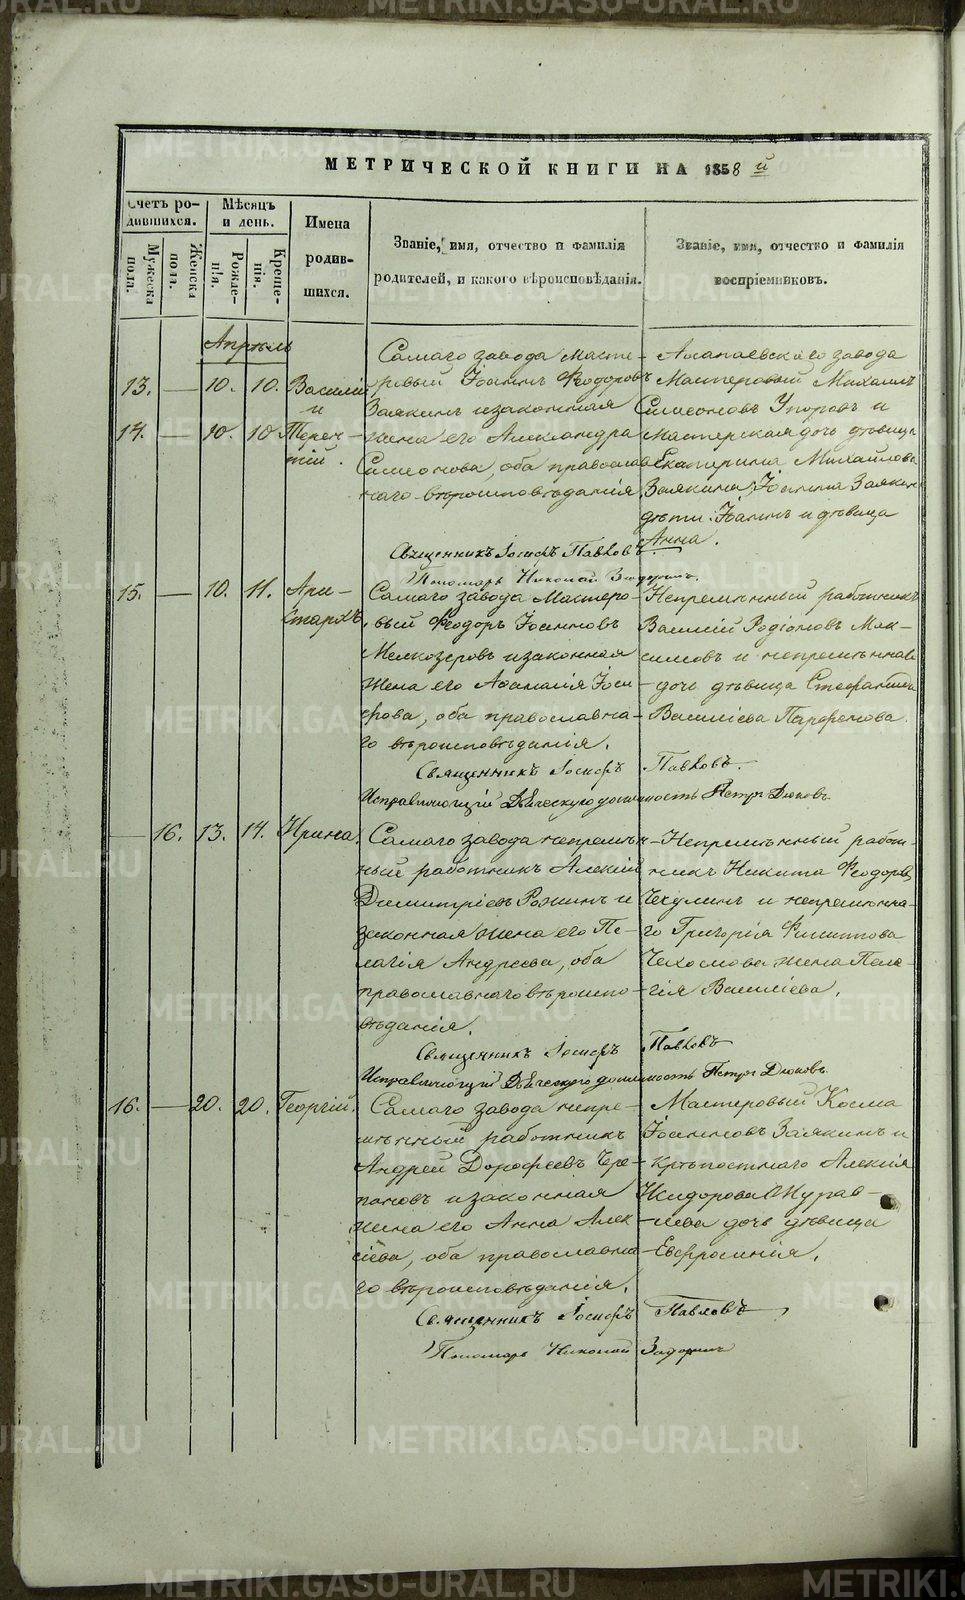 МЕТРИЧЕСКОЙ КНИГИ НА 1858 й
Счетъ ро-
дившихся.
Мужеска
пола.
Женска
пола.
Мѣсяцъ
и день.
Рожде-
нія.
Креще-
нія.
Имена
родив-
шихся.
Званіе, имя, отчество и фамилія
родителей, и какого вѣроисповѣданія.
Званіе, имя, отчество и фамилія
воспріемниковъ.
Апрѣль
13. — 10. 10. Василій
и
14. — 10. 10 Терен-
тій.
Самаго завода Масте-
ровый Іоаннъ Ѳеодоровъ
Заякинъ и законная
жена его Александра
Симеонова, оба православ-
наго вѣроисповѣданія
Алапаевскаго завода
Мастеровый Михаилъ
Симеоновъ Упоровъ и
мастерская дочь дѣвица
Екатерина Михайлова
Заякина, Іоанна Заякин
дѣти: Іоаннъ и дѣвица
Анна.
Священникъ Іосифъ Павловъ.
Пономарь Николай
15. — 10. 11. Ари-
стархъ
Самаго завода Мастеро-
вый Ѳеодоръ Іоанновъ
Мелкозеровъ и законная
жена его Афанасія Іоси-
фова, оба православна-
го вѣроисповѣданія.
Непремѣнный работникъ
Василій Родіоновъ Мак-
симовъ и непремѣннаго
дочь дѣвица Стефанида
Василіева Парфенова.
Священникъ Іосифъ Павловъ.
Исправляющій Дьяческую должность Петръ Дюковъ
— 16. 13. 14. Ирина.
Самаго завода непремѣн-
ный работникъ Алексій
Димитріевъ Рожинъ и
законная жена его Пе-
лагія Андреева, оба
православнаго вѣроиспо-
вѣданія.
Непремѣнный работ-
никъ Никита Ѳеодоровъ
Чекулинъ и непремѣнна-
го Григорія Филиппова
Чехомова жена Пела-
гія Василіева.
Священникъ Іосифъ Павловъ
Исправляющій Дьяческую должность Петръ Дюковъ
16. — 20. 20. Георгій.
Самаго завода непре-
мѣнный работникъ
Андрей Дорофеевъ Чере-
пановъ и законная
жена его Анна Алек-
сіева, оба православна-
го вѣроисповѣданія.
Мастеровый Косма
Іоанновъ Заякинъ и
крѣпостнаго Алексія
Исидорова Журав-
лева дочь дѣвица
Евфросинія.
Священникъ Іосифъ Павловъ
Пономарь Николай
METRIKI.GASO-URAL.RU